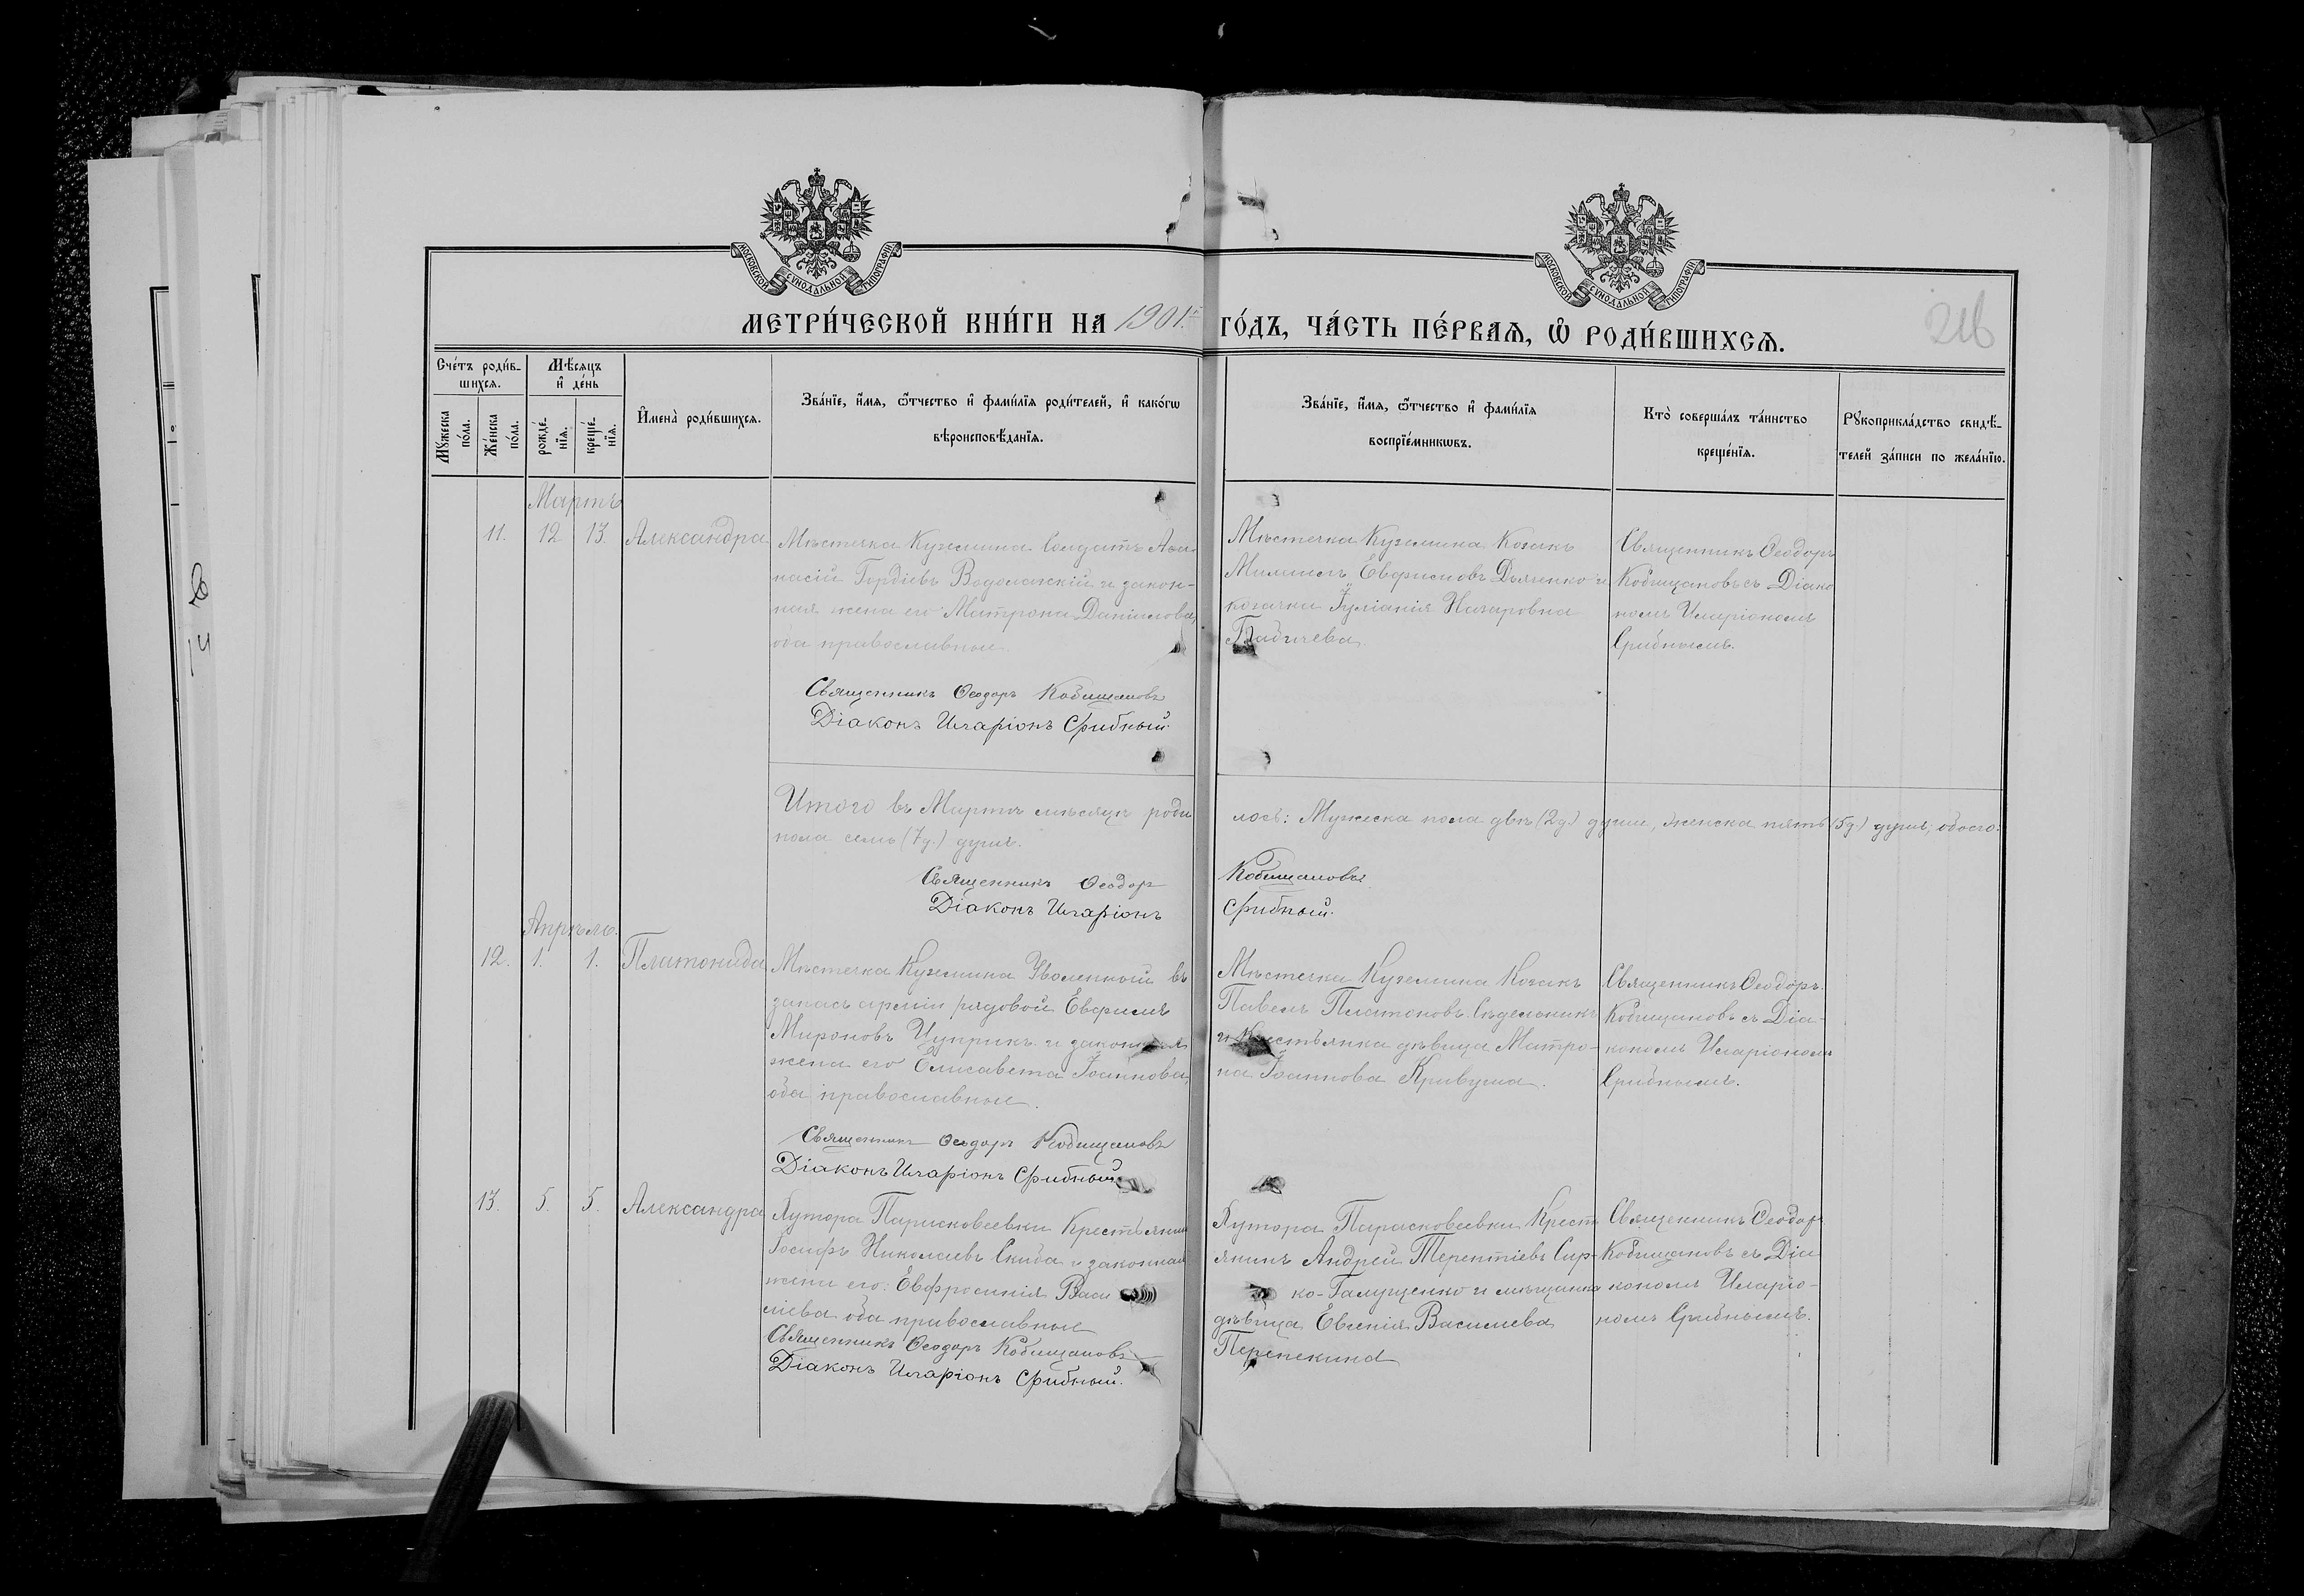 МОСКОВСКОЙ СѴНОДАЛЬНОЙ ТИПОГРАФІИ
МОСКОВСКОЙ СѴНОДАЛЬНОЙ ТИПОГРАФІИ
МЕТРИ́ЧЕСКОЙ КНИ́ГИ НА 1901.й ГО́ДЪ, ЧА́СТЬ ПЕ́РВАѦ, Ѡ҆ РОДИ́ВШИХСѦ.
Сче́тъ роди́в-
шихсѧ.
Мꙋ́жеска
по́ла.
Же́нска
по́ла.
Мѣ́сѧцъ
и҆ де́нь
рожде́-
нїѧ.
креще́-
нїѧ.
И҆мена̀ роди́вшихсѧ.
Зва́нїе, и҆́мѧ, ѻ҆́тчество и҆ фами́лїѧ роди́телей, и҆ како́гѡ
вѣроисповѣ́данїѧ.
Зва́нїе, и҆́мѧ, ѻ҆́тчество и҆ фами́лїѧ
воспрїе́мникѡвъ.
Кто̀ соверша́лъ та́инство
креще́нїѧ.
Рꙋкоприкла́дство свидѣ́-
телей за́писи по жела́нїю.
Мартъ
11. 12 13. Александра
Мѣстечка Куземина Солдатъ Аѳа-
насій Гордіевъ Водолажскій и закон-
ная жена его Матрона Даніилова,
оба православные.
Священникъ Ѳеодоръ Кобищановъ
Діаконъ Иларіонъ Срибный.
Мѣстечка Куземина Козакъ
Евфимовъ Дьяченко и
козачка Іуліанія Назаровна
Священникъ Ѳеодоръ
Кобищановъ съ Діако
номъ Иларіономъ
Срибнымъ.
Итого въ Мартѣ мѣсяцѣ роди
лось: Мужеска пола двѣ (2 д.) души, женска пять (5 д.) душъ, обоего:
пола семь (7 д.) душъ.
Священникъ Ѳеодор Кобищановъ
Діаконъ Иларіонъ Срибный.
Апрѣль.
12. 1. 1. Платонида
Мѣстечка Куземина Уволенный въ
запасъ арміи рядовой Евфимъ
Мироновъ Чуприкъ и законная
жена его Елисавета Іоаннова,
оба православные.
Священникъ Ѳеодоръ Кобищановъ
Діаконъ Иларіонъ Срибный.
Мѣстечка Куземина Козакъ
Павелъ Платоновъ Сѣдельникъ
и Крестьянка дѣвица Матро-
на Іоаннова Кривуша.
Священникъ Ѳеодоръ
Кобищановъ съ Діа-
кономъ Иларіономъ
Срибнымъ.
13. 5. 5. Александра
Хутора Парисковеевки Крестьянинъ
Іосифъ Николаевъ Скиба и законная
жена его: Евфросинія Васи
ліева оба православные
Священникъ Ѳеодоръ Кобищановъ
Діаконъ Иларіонъ Срибный.
Хутора Парасковеевки Крест
янинъ Андрей Терентіевъ Сир-
ко-Галущенко и мѣщанка
дѣвица Евгенія Василиева
Священникъ Ѳеодоръ
Кобищановъ съ Діа
кономъ Иларіо-
номъ Срибнымъ.